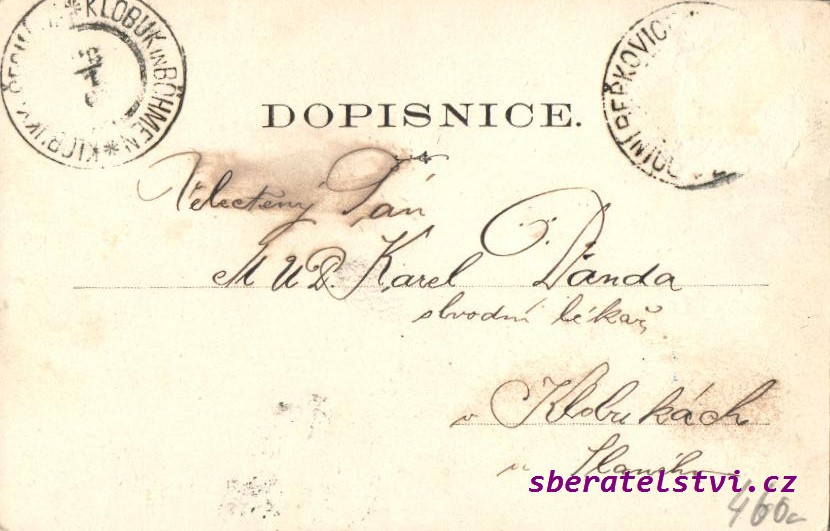 *KLOBUK IN BÖHMEN*KLOBUKY
DOLNÍ BEŘKOVIC
DOPISNICE.
Velectěný Pán
MUD. Karel Danda
obvodní lékař
v Klobukách
u Slaného
sberatelstvi.cz
460